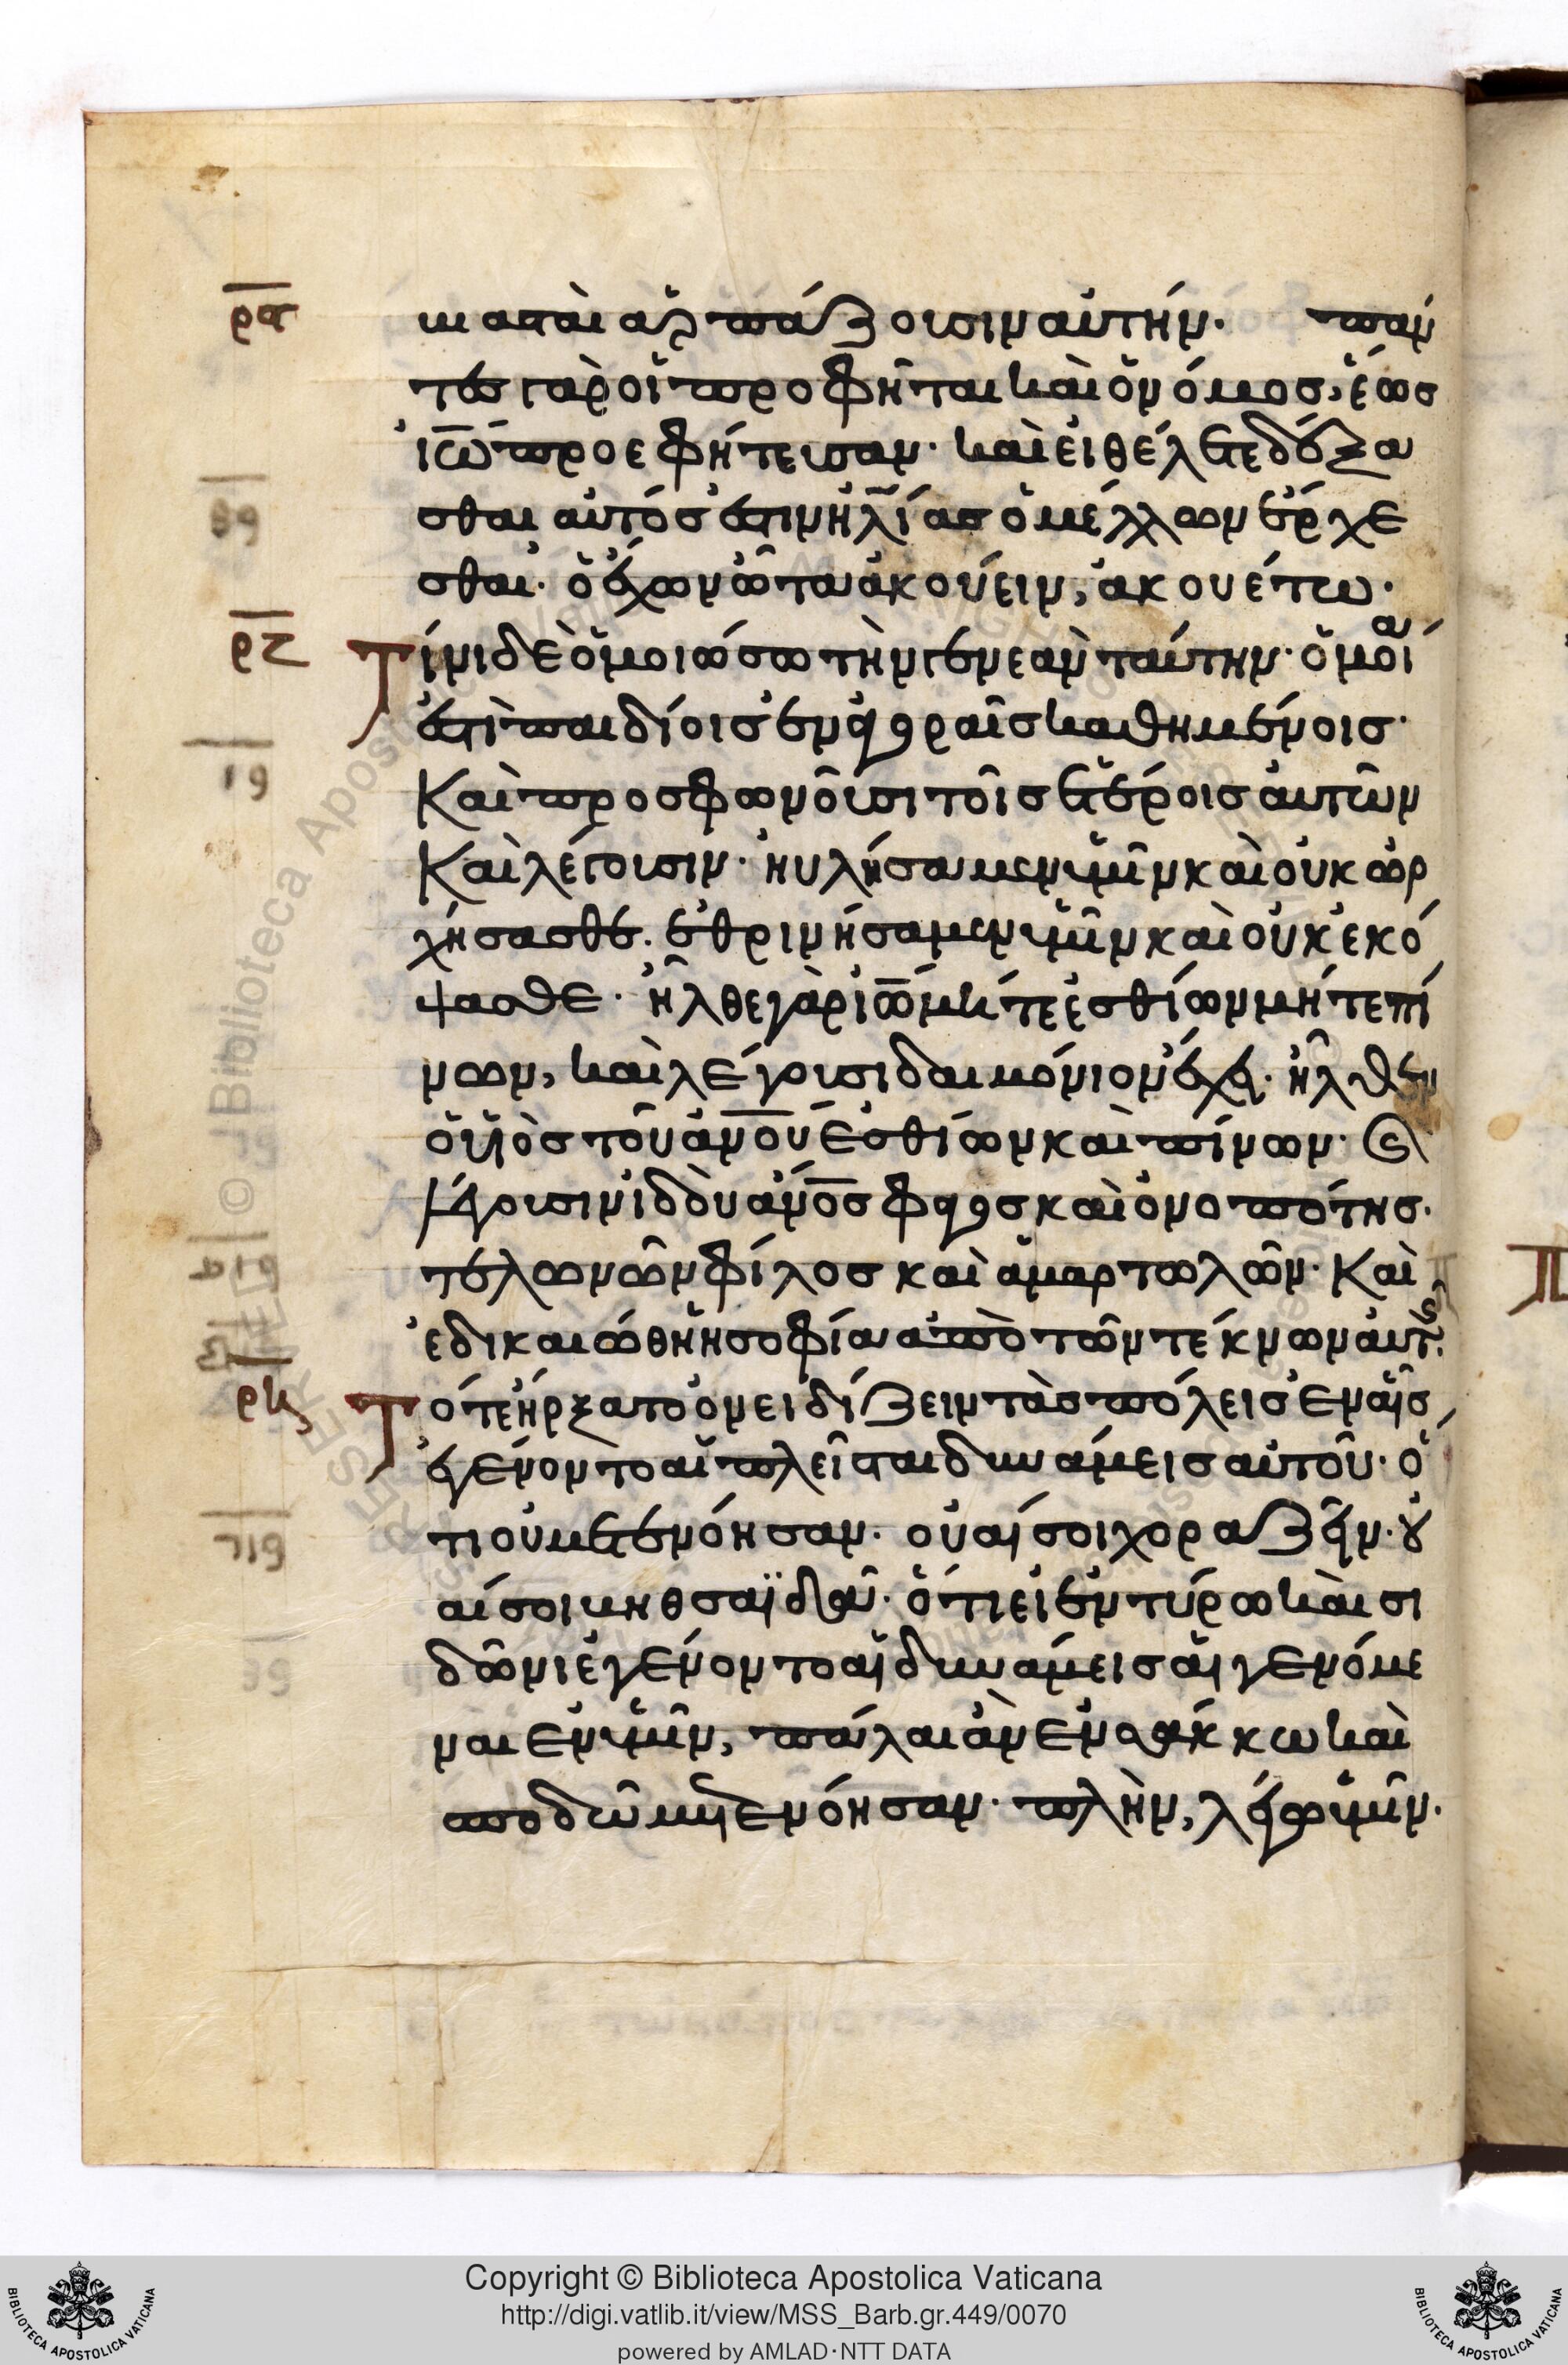 ρϛ
βιασταὶ ἁρπάζουσιν αὐτήν. πάν
τες γὰρ οἱ προφῆται καὶ ὁ νόμος, ἕως
ἰω̅ προεφήτευσαν. καὶ εἰ θέλετε δέξα
σθαι αὐτός ἐστιν ἠλίας ὁ μέλλων ἔρχε
σθαι. ὁ ἔχων ὦτα ἀκούειν, ἀκουέτω.
ρζ
Τίνι δὲ ὁμοιώσω τὴν γενεὰν ταύτην. ὁμοία
ἐστὶ παιδίοις ἐν ἀγοραῖς καθημένοις.
Καὶ προσφωνοῦσι τοῖς ἑτέροις αὐτῶν
Καὶ λέγουσιν. ηὐλήσαμεν ὑμῖν καὶ οὐκ ὠρ
χήσασθε. ἐθρινήσαμεν ὑμῖν καὶ οὐκ ἐκό
ψασθε. ἦλθε γὰρ ἰω̅ μήτε ἐσθίων μήτε πί
νων, καὶ λέγουσι δαιμόνιον ἔχει. ἦλθεν
ὁ υἱὸς τοῦ ἀν̅ο̅υ̅ ἐσθίων καὶ πίνων. καὶ
λέγουσιν ἰδοὺ ἄν̅ο̅ς̅ φάγος καὶ οἰνοπότης.
τελωνῶν φίλος καὶ ἁμαρτωλῶν. Καὶ
ἐδικαιώθη ἡ σοφία ἀπὸ τῶν τέκνων αὐτῆς.
ρη
Τότε ἤρξατο ὀνειδίζειν τὰς πόλεις ἐν αἷς
ἐγένοντο αἱ πλεῖσται δυνάμεις αὐτοῦ. ὅ
τι οὐ μετενόησαν. οὐαί σοι χοραζείν. οὐ
αί σοι βηθσαϊδάν. ὅτι εἰ ἐν τύρω καὶ σι
δῶνι ἐγένοντο αἱ δυνάμεις αἱ γενόμε
ναι ἐν ὑμῖν, πάλαι ἂν ἐν σάκκω καὶ
σποδῶ μετενόησαν. πλὴν, λέγω ὑμῖν.
Copyright © Biblioteca Apostolica Vaticana
http://digi.vatlib.it/view/MSS_Barb.gr.449/0070
powered by AMLAD·NTT DATA